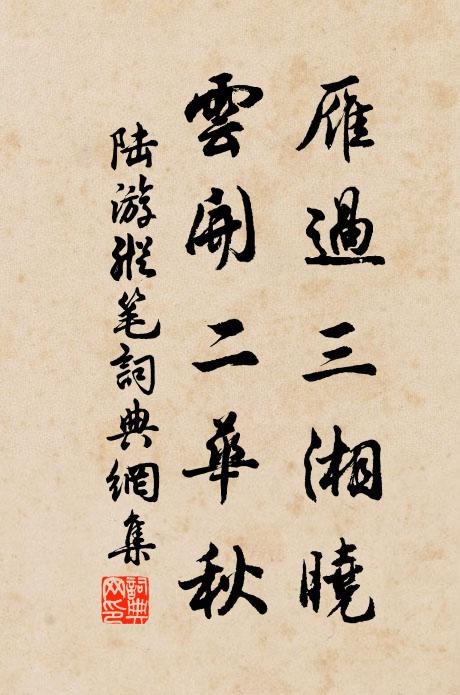 雁過三湘曉
雲開二華秋
陸游縱笔詞典網集
詞典
网印